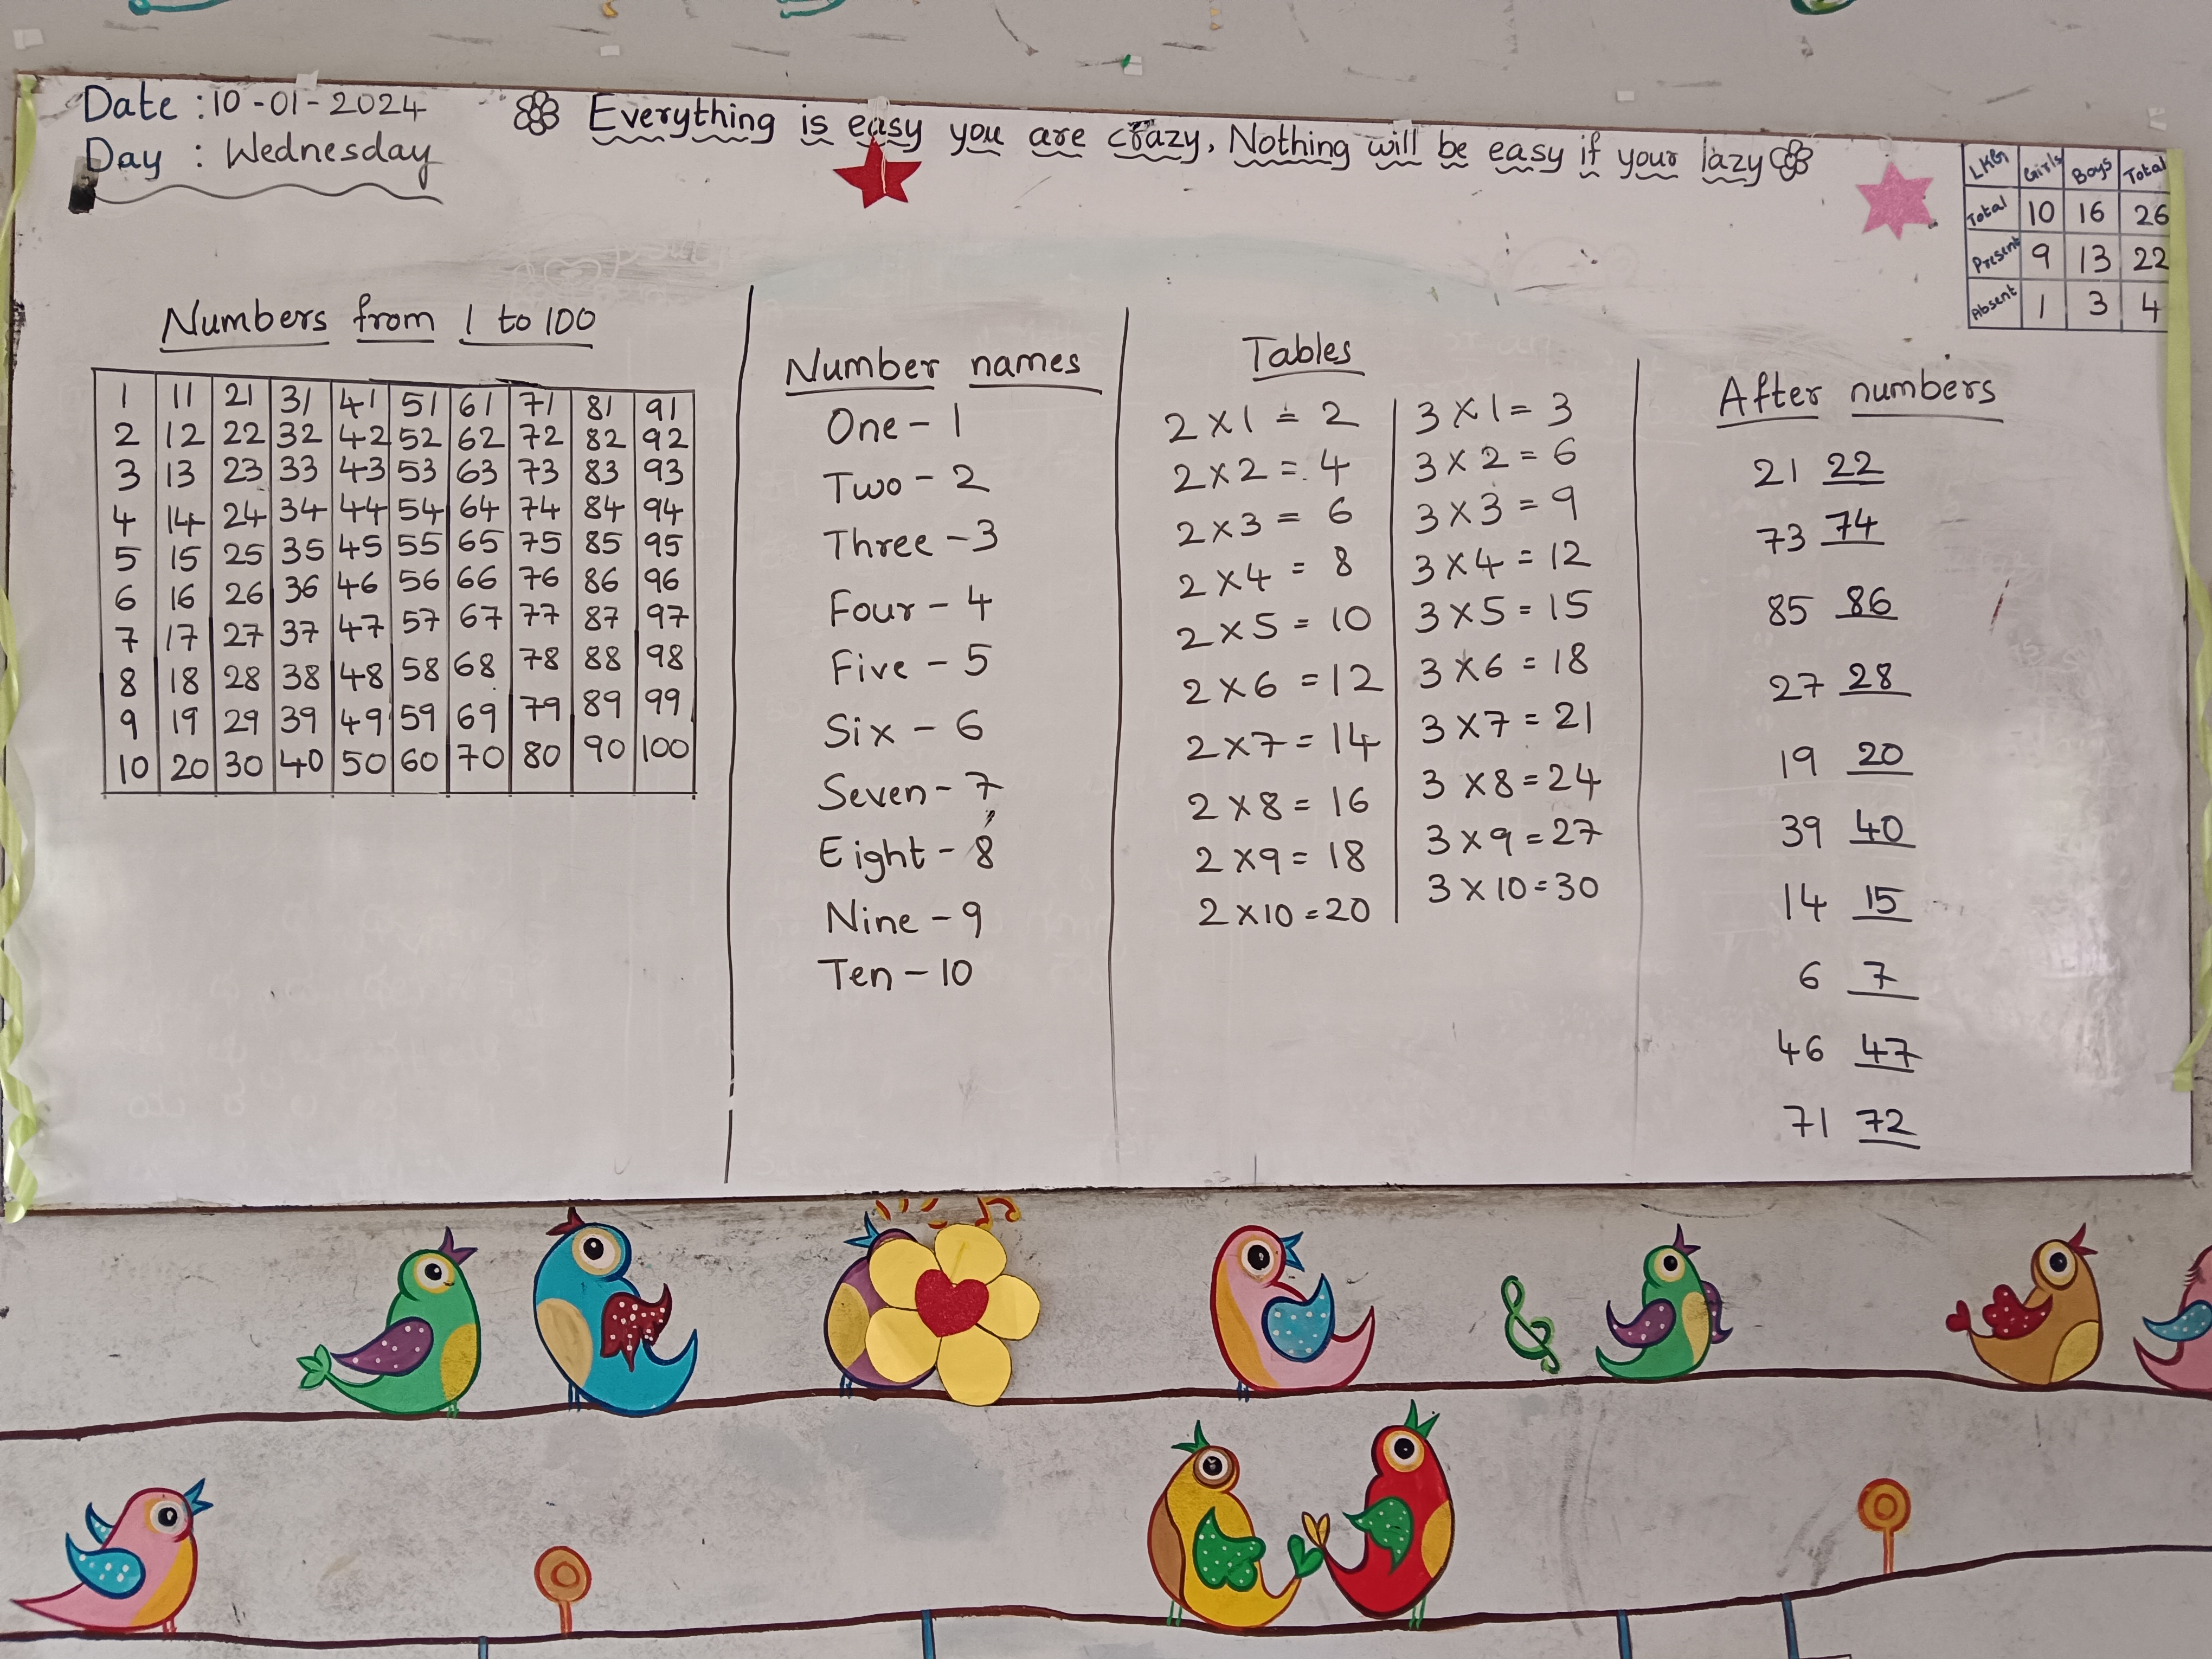 Date : 10-01-2024
Day : Wednesday
Everything is easy you are crazy, Nothing will be easy if your lazy
LKG Girls Boys Total
Total 10 16 26
Present 9 13 22
Absent 1 3 4
Numbers from 1 to 100
1 11 21 31 41 51 61 71 81 91
2 12 22 32 42 52 62 72 82 92
3 13 23 33 43 53 63 73 83 93
4 14 24 34 44 54 64 74 84 94
5 15 25 35 45 55 65 75 85 95
6 16 26 36 46 56 66 76 86 96
7 17 27 37 47 57 67 77 87 97
8 18 28 38 48 58 68 78 88 98
9 19 29 39 49 59 69 79 89 99
10 20 30 40 50 60 70 80 90 100
Number names
One - 1
Two - 2
Three - 3
Four - 4
Five - 5
Six - 6
Seven - 7
Eight - 8
Nine - 9
Ten - 10
Tables
2 x 1 = 2
2 x 2 = 4
2 x 3 = 6
2 x 4 = 8
2 x 5 = 10
2 x 6 = 12
2 x 7 = 14
2 x 8 = 16
2 x 9 = 18
2 x 10 = 20
3 x 1 = 3
3 x 2 = 6
3 x 3 = 9
3 x 4 = 12
3 x 5 = 15
3 x 6 = 18
3 x 7 = 21
3 x 8 = 24
3 x 9 = 27
3 x 10 = 30
After numbers
21 22
73 74
85 86
27 28
19 20
39 40
14 15
6 7
46 47
71 72